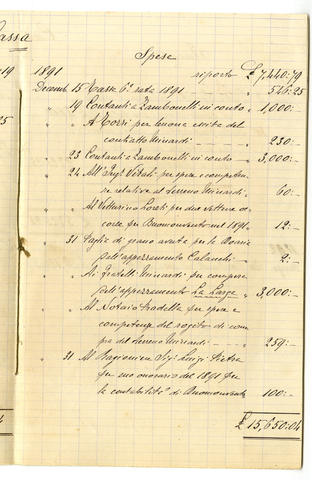 Cassa
Spese
19
1891
riporto £ 7,440:79
Decemb. 15 Tasse 6ª rata 1891 " 546:25
" 19 Contanti a Zambonelli in conto " 1,000:—
" " A Torri per buona uscita del
contratto Minardi " 230:—
" 23 Contanti a Zambonelli in conto " 3,000:—
" 24 All'Ingr Vitali per spese e competen
ze relative al terreno Minardi " 60:—
" " Al Vetturino per due vetture oc
corse per Buonconvento nel 1891 " 12:—
" 31 Paglia di grano avuta per le
dall'appezzamento Calanchi " 2:—
" " Ai fratelli Minardi per compera
dell'appezzamento La Larga " 3,000:—
" " Al Notaio Stradella per spese e
competenze del rogito di com
pra del terreno Minardi " 259:—
" 31 Al Ragioniere Sigr Luigi Pietra
per suo onorario del 1891 per
la contabilità di Buonconvento " 100:—
£ 15,650:04